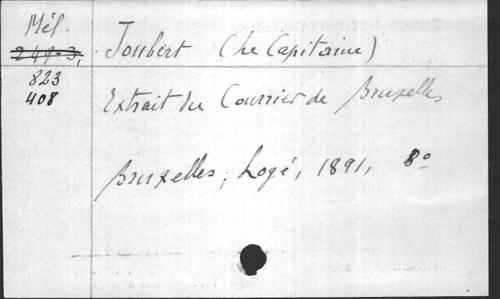 Mél.
249-3,
823
408
Joubert (Le Capitaine)
Extrait du Courrier de Bruxelles
Bruxelles, Logé, 1891, 8º